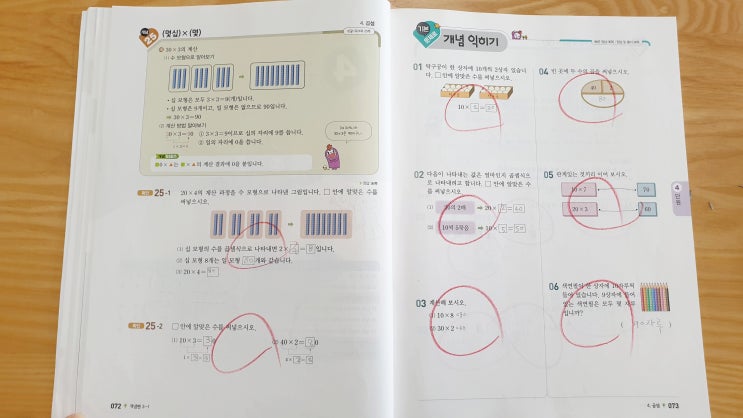 개념 25 (몇십)×(몇)
4. 곱셈
30×3의 계산
(1) 수 모형으로 알아보기
• 십 모형은 모두 3×3=9(개)입니다.
• 십 모형은 9개이고, 일 모형은 없으므로 90입니다.
⇨ 30×3=90
(2) 계산 방법 알아보기
30×3=90
3×3=9
① 3×3=9이므로 십의 자리에 9를 씁니다.
② 일의 자리에 0을 씁니다.
■0×▲는 ■×▲의 계산 결과에 0을 붙입니다.
확인 25-1
20×4의 계산 과정을 수 모형으로 나타낸 그림입니다. □ 안에 알맞은 수를
써넣으시오.
(1) 십 모형의 수를 곱셈식으로 나타내면 2×4=8입니다.
(2) 십 모형 8개는 일 모형 80개와 같습니다.
(3) 20×4=80
확인 25-2
□ 안에 알맞은 수를 써넣으시오.
(1) 20×3=
(2) 40×2=
072
개념편 3-1
기본
개념 익히기
01 탁구공이 한 상자에 10개씩 3상자 있습니
다. □ 안에 알맞은 수를 써넣으시오.
10×3=30
02 다음이 나타내는 값은 얼마인지 곱셈식으
로 나타내려고 합니다. □ 안에 알맞은 수
를 써넣으시오.
(1) 20의 2배 ⇨ 20×2=40
(2) 10씩 5묶음 ⇨ 10×5=50
03 계산해 보시오.
(1) 10×8
(2) 30×2
04 빈 곳에 두 수의 곱을 써넣으시오.
40 2
80
05 관계있는 것끼리 이어 보시오.
10×7 70
20×3 60
06 색연필이 한 상자에 10자루씩
들어 있습니다. 9상자에 들어
있는 색연필은 모두 몇 자루
입니까?
( 90자루 )
4
단원
4. 곱셈
073